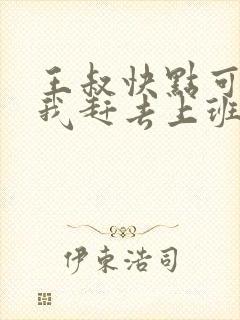 王叔快點可
我赶去上班
伊東浩司